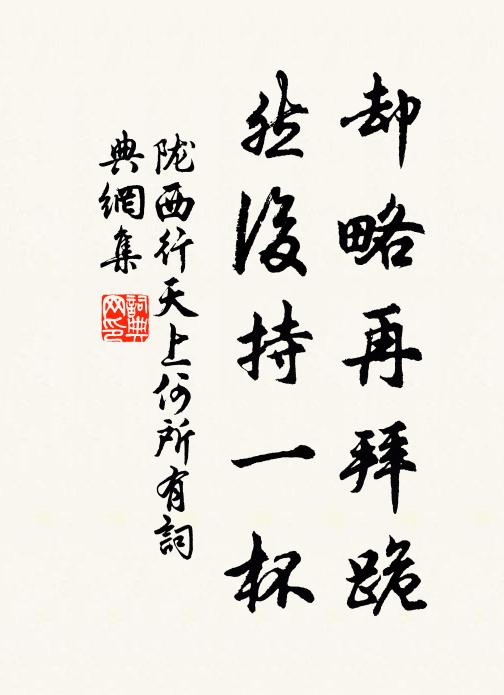 却略再拜跪
然後持一杯
陇西行天上何所有詞
典網集
詞典
网印